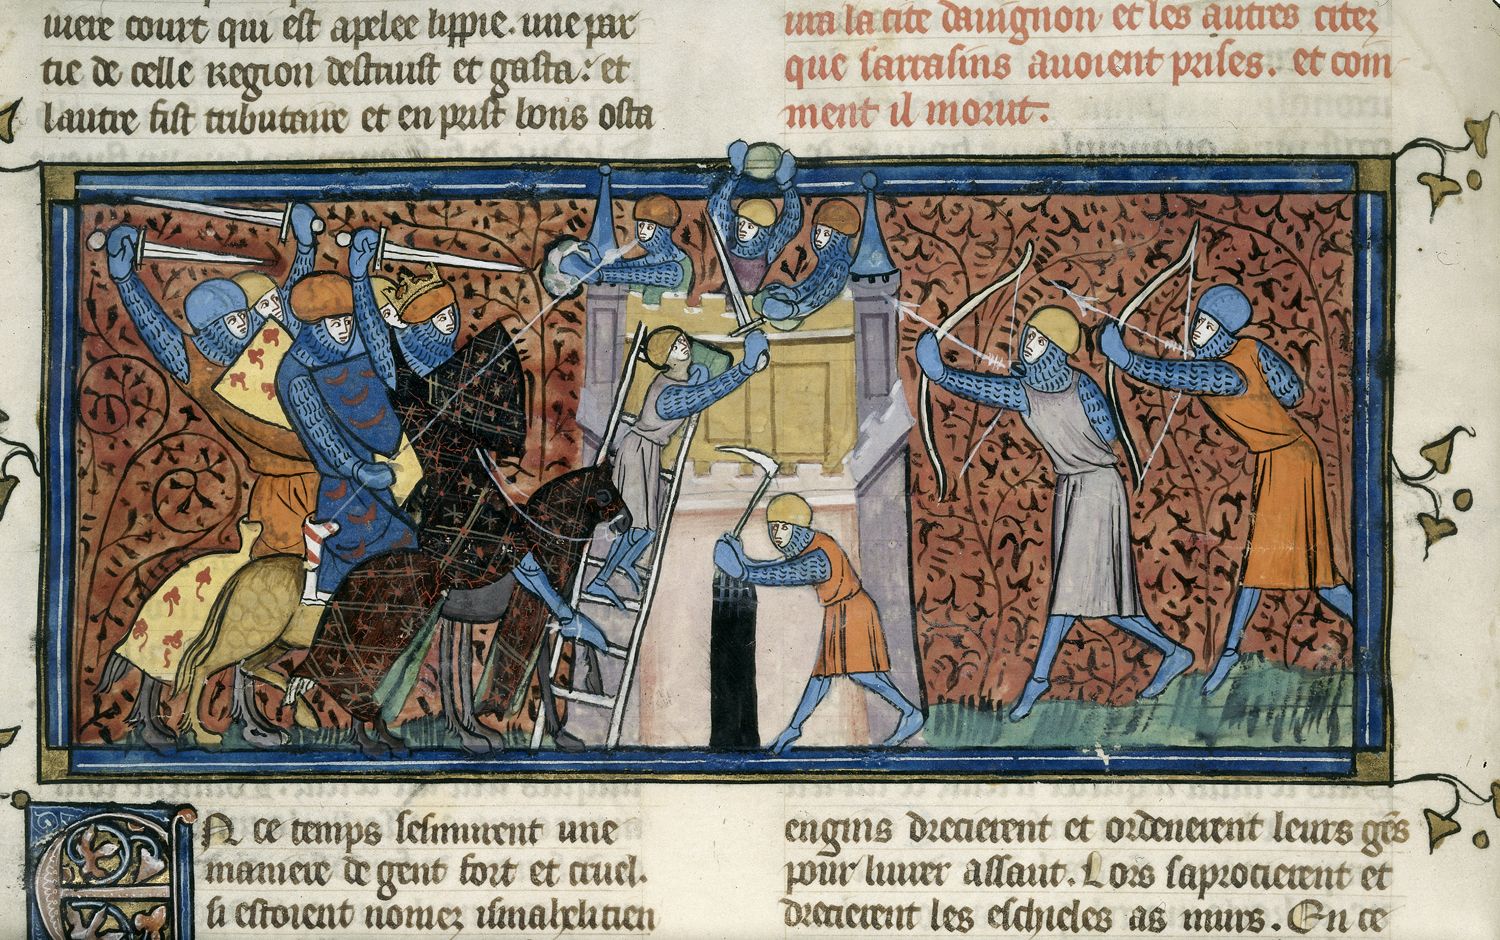 uiere court qui est apelee lippie. une par
tie de celle region destruist et gasta: et
lautre fist tributaire et en prist bons osta
ura la cite dauignon et les autres citez
que sarrasins auoient prises. et com
ment il morut.
EN ce temps sesmurent une
maniere de gent fort et cruel.
si estoient nomez ismahelitien
engins drecierent et ordenerent leurs gẽs
pour liurer assaut. Lors saprocierent et
drecierent les eschieles as murs. En ce